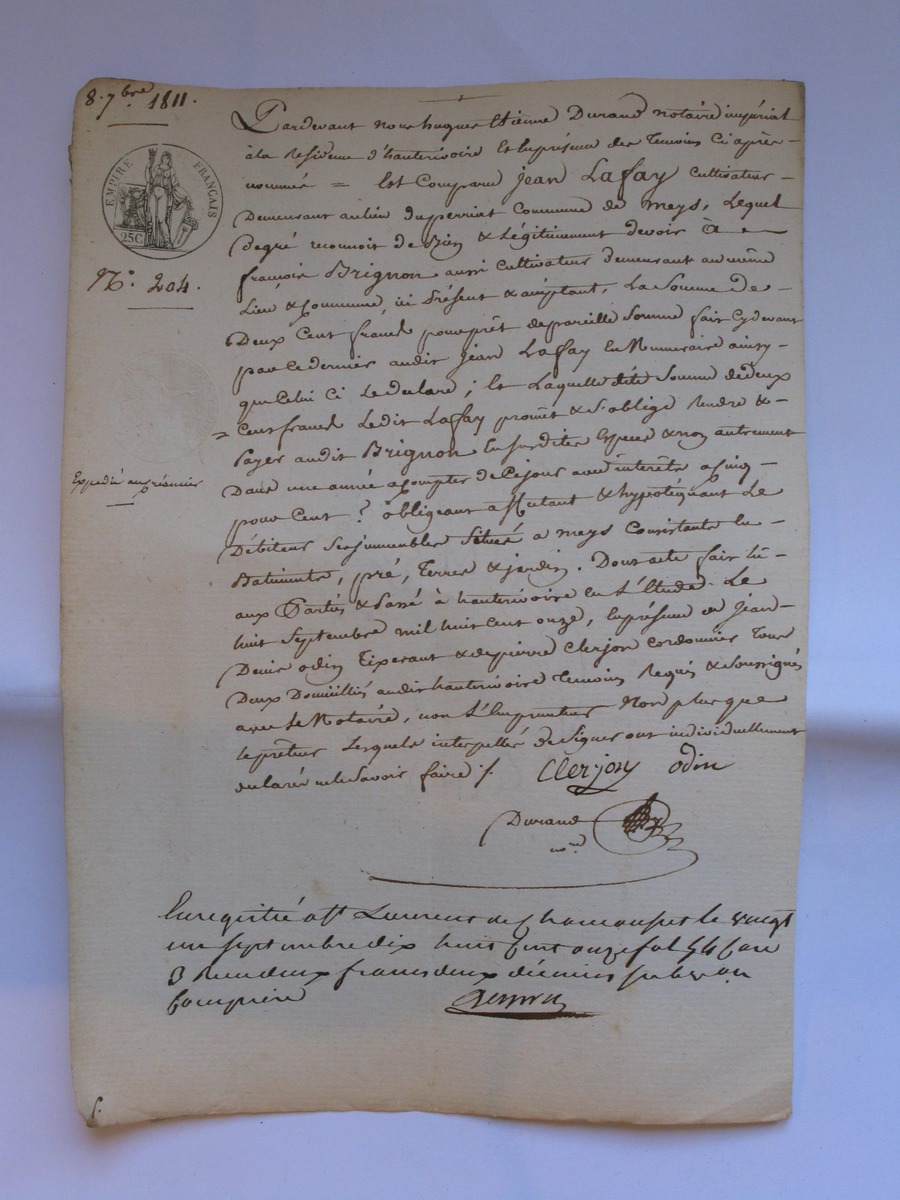 8. 7bre 1811.
EMPIRE FRANÇAIS
25C
N.° 204.
Expédié au créancier
Pardevant nous hugues Etienne Durand notaire impérial
à la Residence d'hauterivoire Et En présence des temoins Ci après
nommés = Est Comparu Jean Lafay Cultivateur
Demeurant au lieu du perriat Commune de Meys, Lequel
De gré reconnoit de Bien & Légitimement devoir à
francois Brignon aussi Cultivateur demeurant au même
Lieu & Commune, ici Présent & acceptant, La Somme de
Deux Cent francs pour prêt de pareille Somme fait Cy devant
par Ce dernier audit Jean Lafay En Numeraire ainsy
que Celui Ci Le declare ; Et Laquelle dite Somme de deux
= Cent francs Ledit Lafay promet & S'oblige Rendre &
Payer audit Brignon En Susdites Espèces & non autrement
Dans une année a Compter de Ce jour avec intérêts a Cinq
pour Cent ? obligeant affectant & hypotéquant Le
Débiteur Ses immeubles Situés a meys Consistants En
Batiments, pré, Terres & jardin. Dont acte fait Lu
aux Parties & Passé à hauterivoire En L'Etude Le
huit Septembre mil huit Cent onze, En présence de Jean
Denis odin Tixerant & de pierre Clerjon Cordonnier Tous
Deux Domicilliés audit hauterivoire Temoins Requis & Soussignés
avec Le Notaire, non L'Emprunteur Non plus que
le prêteur Lesquels interpellés de Signer ont individuellement
declaré ne le Savoir faire /.
Clerjon odin
Durand
nre
Enregistré a St Laurent de Chamousset le vingt
un septembre dix huit Cent onze fol 54 Case
3 Reçu deux francs deux décimes subvon
Comprise